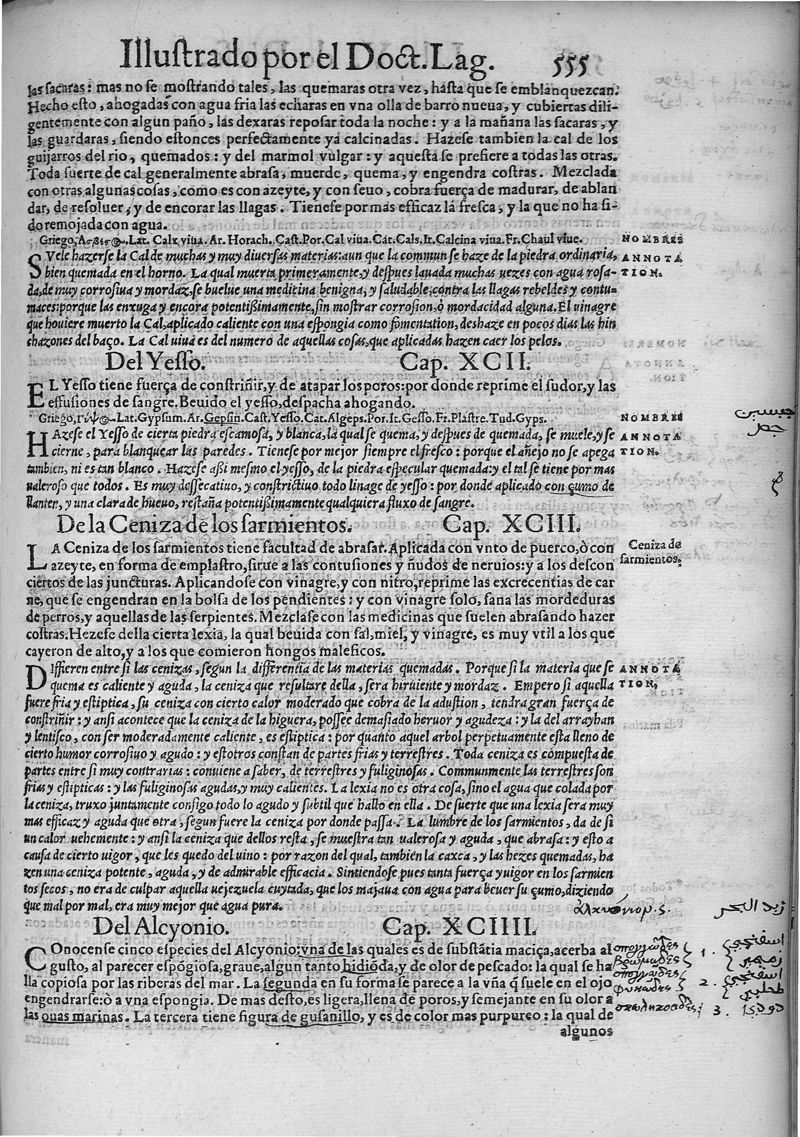 Illustrado por el Doct. Lag. 555
las sacaras: mas no se mostrando tales, las quemaras otra vez, hasta que se emblanquezcan.
Hecho esto, ahogadas con agua fria las echaras en vna olla de barro nueua, y cubiertas dili-
gentemente con algun paño, las dexaras reposar toda la noche: y a la mañana las sacaras, y
las guardaras, siendo estonces perfectamente ya calcinadas. Hazese tambien la cal de los
guijarros del rio, quemados: y del marmol vulgar: y aquesta se prefiere a todas las otras.
Toda suerte de cal generalmente abrasa, muerde, quema, y engendra costras. Mezclada
con otras algunas cosas, como es con azeyte, y con seuo, cobra fuerça de madurar, de ablan
dar, de resoluer, y de encorar las llagas. Tienese por mas efficaz la fresca, y la que no ha si-
do remojada con agua.
Griego, Ασβεστος. Lat. Calx viua. Ar. Horach. Cast. Por. Cal viua. Cat. Cals. It. Calcina viua. Fr. Chaul viue. NOMBRES
SVele hazerse la Cal de muchas y muy diuersas materias: aun que la commun se haze de la piedra ordinaria, ANNOTA
bien quemada en el horno. La qual muerta primeramente, y despues lauada muchas uezes con agua rosa- TION.
da, de muy corrosiua y mordaz, se buelue una medicina benigna, y saludable, contra las llagas rebeldes y contu-
maces: porque las enxuga y encora potentissimamente, sin mostrar corrosion, ò mordacidad alguna. El uinagre
que houiere muerto la Cal, aplicado caliente con una espongia como fomentation, deshaze en pocos dias las hin
chazones del baço. La Cal uiua es del numero de aquellas cosas, que aplicadas hazen caer los pelos.
Del Yesso. Cap. XCII.
EL Yesso tiene fuerça de constriñir, y de atapar los poros: por donde reprime el sudor, y las
effusiones de sangre. Beuido el yesso, despacha ahogando.
Griego, Γύψος. Lat. Gypsum. Ar. Gepsin. Cast. Yesso. Cat. Algeps. Por. It. Gesso. Fr. Plastre. Tud. Gyps. NOMBRES
HAzese el Yesso de cierta piedra escamosa, y blanca, la qual se quema, y despues de quemada, se muele, y se ANNOTA
cierne, para blanquear las paredes. Tienese por mejor siempre el fresco: porque el añejo no se apega TION.
tambien, ni es tan blanco. Hazese assi mesmo el yesso, de la piedra especular quemada: y el tal se tiene por mas
ualeroso que todos. Es muy dessecatiuo, y constrictiuo todo linage de yesso: por donde aplicado con çumo de
llanten, y una clara de hueuo, restaña potentissimamente qualquiera fluxo de sangre.
De la Ceniza de los sarmientos. Cap. XCIII.
LA Ceniza de los sarmientos tiene facultad de abrasar. Aplicada con vnto de puerco, ò con Ceniza de
azeyte, en forma de emplastro, sirue a las contusiones y ñudos de neruios: y a los descon sarmientos.
ciertos de las juncturas. Aplicandose con vinagre, y con nitro, reprime las excrecentias de car
ne, que se engendran en la bolsa de los pendientes: y con vinagre solo, sana las mordeduras
de perros, y aquellas de las serpientes. Mezclase con las medicinas que suelen abrasando hazer
costras. Hezese della cierta lexia, la qual beuida con sal, miel, y vinagre, es muy vtil a los que
cayeron de alto, y a los que comieron hongos maleficos.
DIfficren entre si las cenizas, segun la differentia de las materias quemadas. Porque si la materia que se ANNOTA
quema es caliente y aguda, la ceniza que resultare della, sera hiruiente y mordaz. Empero si aquella TION.
fuere fria y estiptica, su ceniza con cierto calor moderado que cobra de la adustion, tendra gran fuerça de
constriñir: y ansi acontece que la ceniza de la higuera, possee demasiado heruor y agudeza: y la del arrayhan
y lentisco, con ser moderadamente caliente, es estiptica: por quanto aquel arbol perpetuamente esta lleno de
cierto humor corrosiuo y agudo: y estotros constan de partes frias y terrestres. Toda ceniza es compuesta de
partes entre si muy contrarias: conuiene a saber, de terrestres y fuliginosas. Communmente las terrestres son
frias y estipticas: y las fuliginosas agudas, y muy calientes. La lexia no es otra cosa, sino el agua que colada por
la ceniza, truxo juntamente consigo todo lo agudo y subtil que hallo en ella. De suerte que una lexia sera muy
mas efficaz y aguda que otra, segun fuere la ceniza por donde passa. La lumbre de los sarmientos, da de si
un calor uehemente: y ansi la ceniza que dellos resta, se muestra tan ualerosa y aguda, que abrasa: y esto a
causa de cierto uigor, que les quedo del uino: por razon del qual, tambien la caxca, y las hezes quemadas, ha
zen una ceniza potente, aguda, y de admirable efficacia. Sintiendose pues tanta fuerça y uigor en los sarmien
tos secos, no era de culpar aquella uejezuela cuytada, que los majaua con agua para beuer su çumo, diziendo
que mal por mal, era muy mejor que agua pura.
زبد البحر
Del Alcyonio. Cap. XCIIII.
COnocense cinco especies del Alcyonio: vna de las quales es de substãtia maciça, acerba al
gusto, al parecer espõgiosa, graue, algun tanto hidiõda, y de olor de pescado: la qual se ha 1.
lla copiosa por las riberas del mar. La segunda en su forma se parece a la vña q̃ suele en el ojo 2.
engendrarse: ò a vna espongia. De mas desto, es ligera, llena de poros, y semejante en su olor a
las ouas marinas. La tercera tiene figura de gusanillo, y es de color mas purpureo: la qual de 3.
algunos